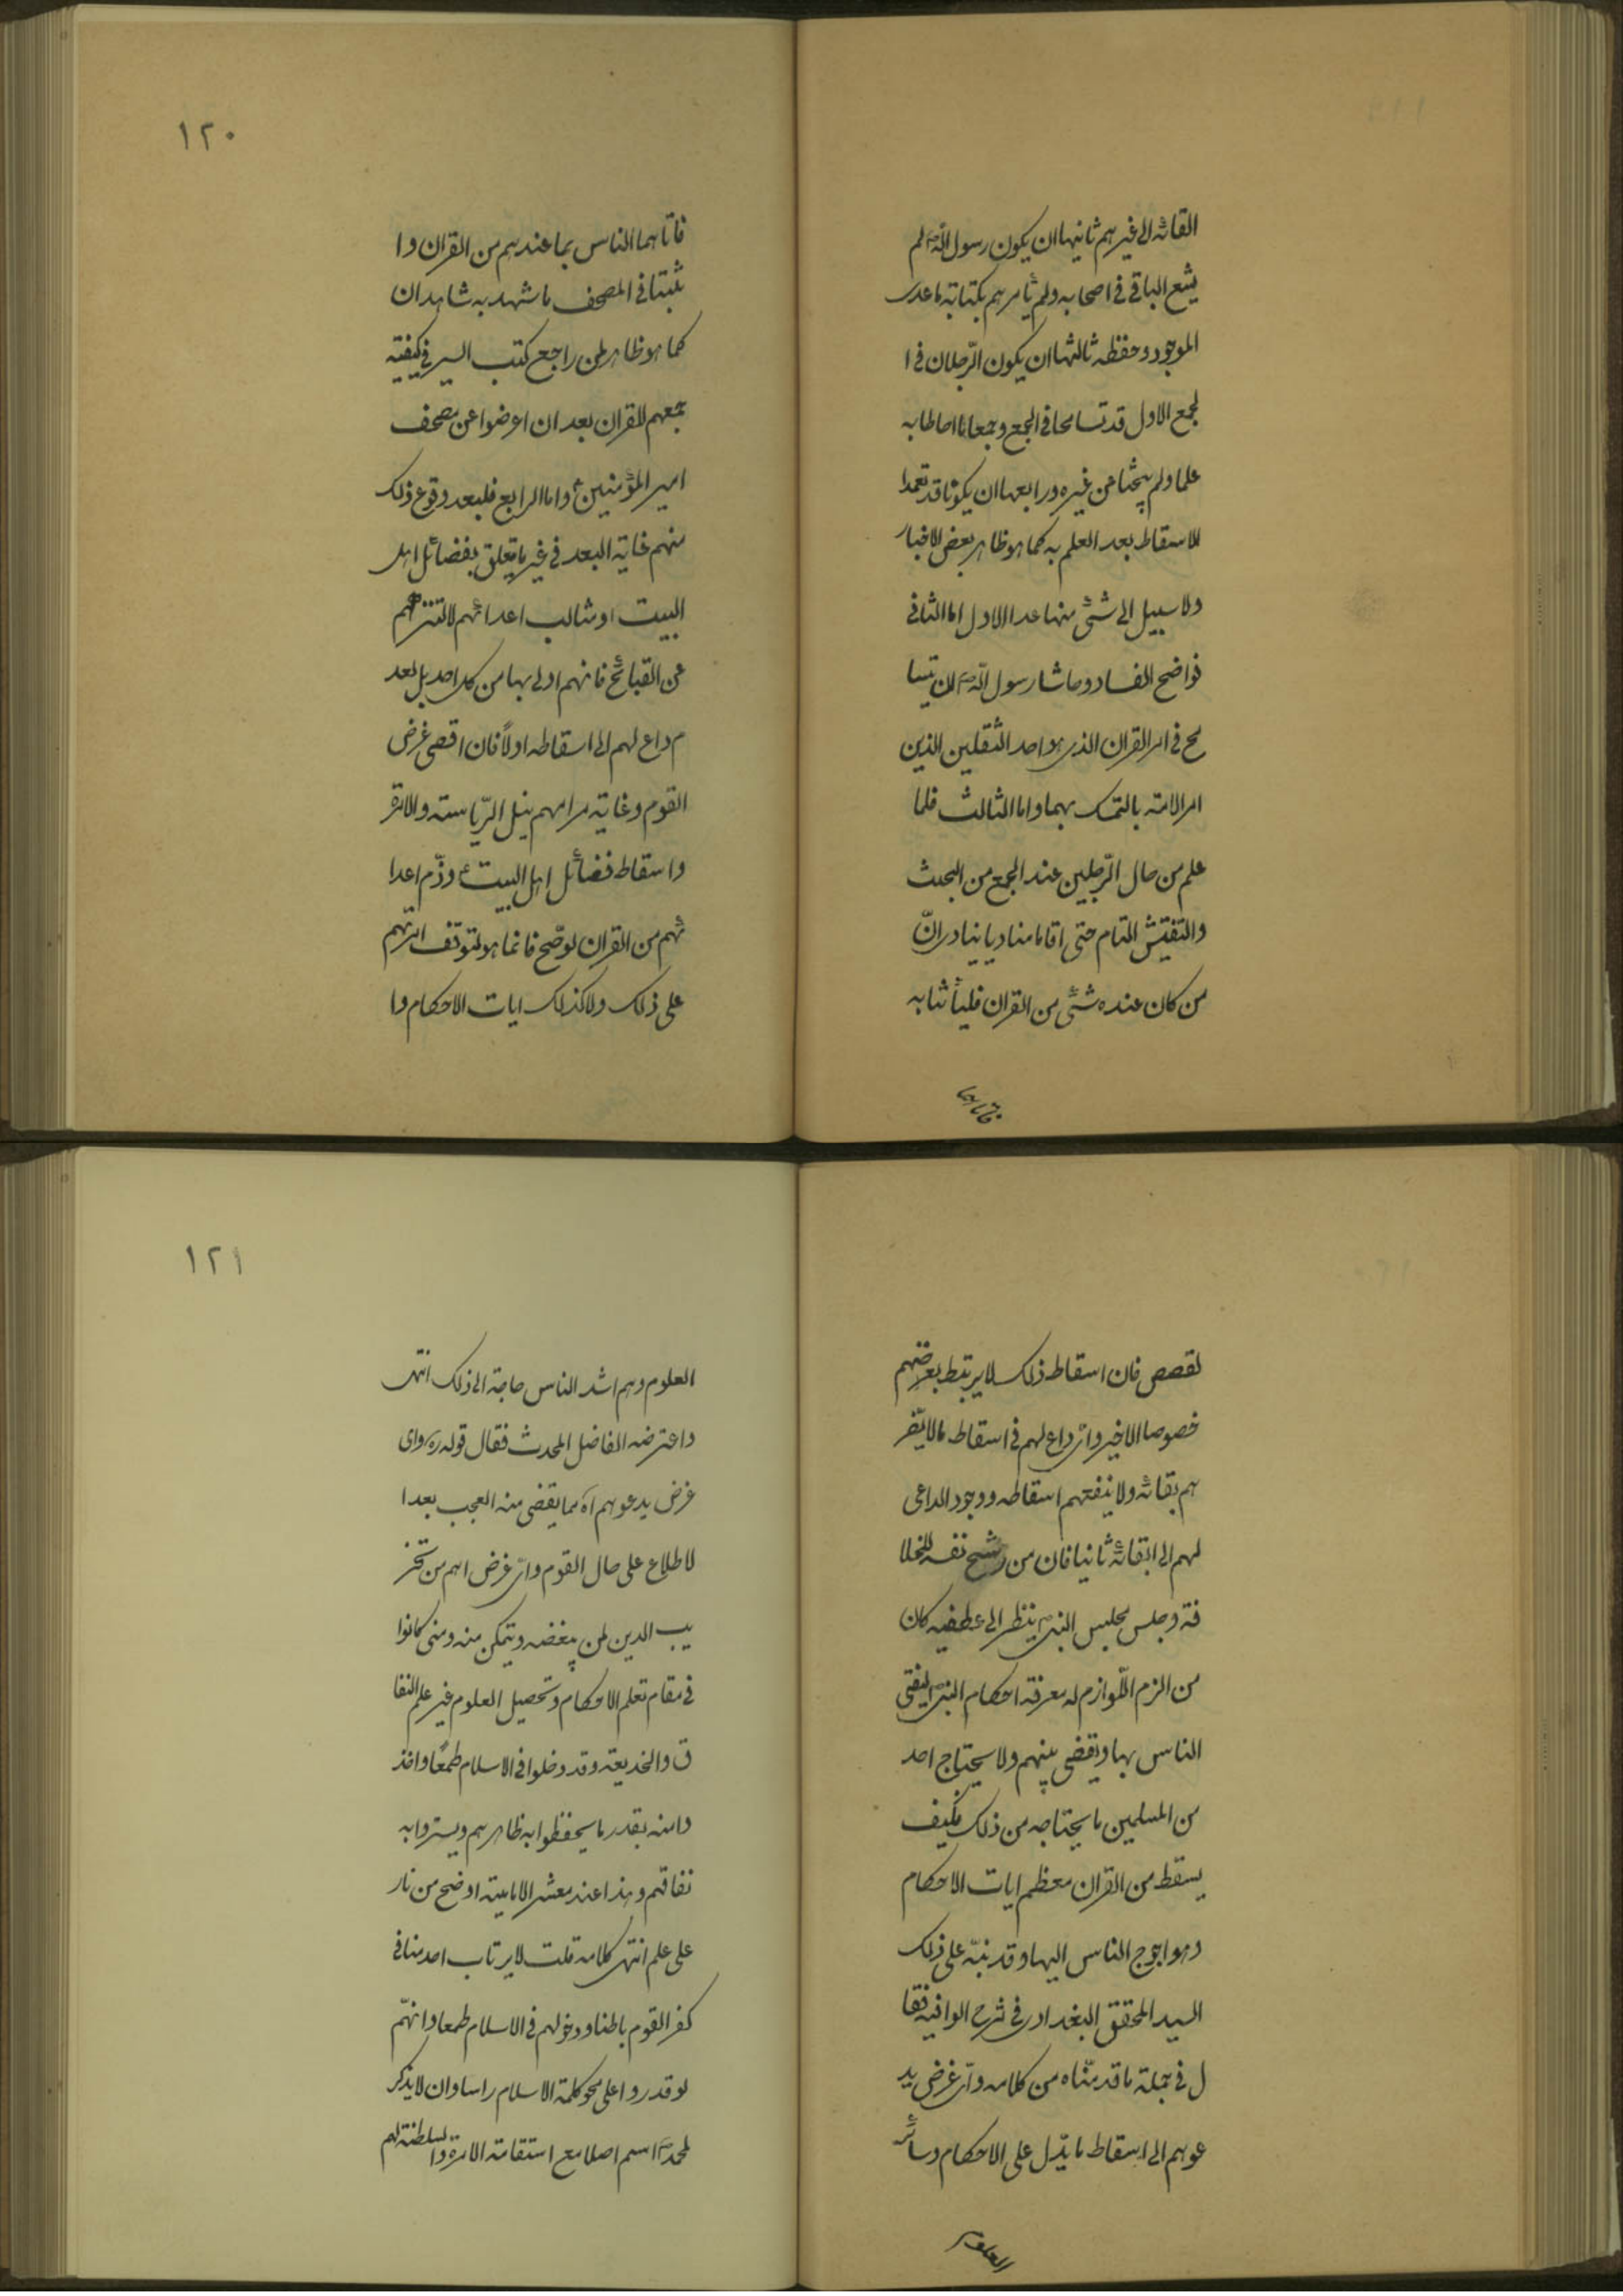 القائه الى غيرهم ثانيها ان يكون رسول اللهؐ لم
يشع الباقى فى اصحابه ولم يأمرهم بكتابته ما عدى
الموجود وحفظه ثالثها ان يكون الرّجلان فى ا
لجمع الاول قد تسامحا فى الجمع وجمعا ما احاطا به
علما ولم يبحثا عن غيره ورابعها ان يكونا قد تعمدا
للاسقاط بعد العلم به كما هو ظاهر بعض الاخبار
ولا سبيل الى شئ منها عدا الاول اما الثانى
فواضح الفساد وحاشا رسول اللهؐ ان يتسا
مح فى امر القران الذى هو احد الثقلين الذين
امر الامته بالتمسك بهما واما الثالث فلما
علم من حال الرّجلين عند الجمع من البحث
والتفتيش التام حتى اقاما مناديا ينادى انّ
من كان عنده شئ من القران فليأتنا به
فاتاهما
١٢٠
فاتاهما الناس بما عندهم من القران وا
ثبتا فى المصحف ما شهد به شاهدان
كما هو ظاهر لمن راجع كتب السير فى كيفيته
جمعهم للقران بعد ان اعرضوا عن مصحف
امير المؤمنينؑ واما الرابع فلبعد وقوع ذلك
منهم غايته البعد فى غير ما يتعلق بفضائل اهل
البيت او مثالب اعدائهم لا لتنزههم
عن القبائح فانهم اولى بها من كل احد بل لعد
م داع لهم الى اسقاطه اولاً فان اقصى غرض
القوم وغايته مرامهم نيل الرّياسته والامرة
واسقاط فضائل اهل البيتؑ وذّم اعدا
ئهم من القران لو صّح فانما هو لتوقف امرتهم
على ذلك ولا كذلك ايات الاحكام وا
لقصص فان اسقاط ذلك لا يرتبط بغرضهم
خصوصا الاخير واىّ داع لهم فى اسقاط ما لا يضّر
هم بقائه ولا ينفعهم اسقاطه ووجود الداعى
لهم الى ابقائه ثانيا فان من رشح نفسه للخلا
فة وجلس مجلس النبىؐ ينظر الى عطفيه كان
من الزم اللّوازم له معرفة احكام النبىؐ ليفتى
الناس بها ويقضى بينهم ولا يحتاج احد
من المسلمين ما يحتاجه من ذلك فكيف
يسقط من القران معظم ايات الاحكام
وهو احوج الناس اليها وقد نبّه على ذلك
السيد المحقق البغدادى فى شرح الوافيه فقا
ل فى جملة ما قدمّناه من كلامه واىّ غرض يد
عوهم الى اسقاط ما يدّل على الاحكام وسائر
العلوم
١٢١
العلوم وهم اشد الناس حاجته الى ذلك انتهى
واعترضه الفاضل المحدث فقال قوله ره واى
غرض يدعوهم آه مما يقضى منه العجب بعد ا
لاطلاع على حال القوم واىّ غرض اهم من تخر
يب الدين لمن يبغضه ويتمكن منه ومتى كانوا
فى مقام تعلم الاحكام وتحصيل العلوم غير علم النفا
ق والخديعته وقد دخلوا فى الاسلام طمعًا واخذ
وا منه بقدر ما يحفظوا به ظاهرهم ويستروا به
نفاقهم وهذا عند معشر الاماميته اوضح من نار
على علم انتهى كلامه قلت لا يرتاب احد منا فى
كفر القوم باطنا ودخولهم فى الاسلام طمعا وانهّم
لو قدروا على محو كلمة الاسلام راسا وان لا يذكر
لمحمدؐ اسم اصلا مع استقامته الامرة والسلطنته لهم